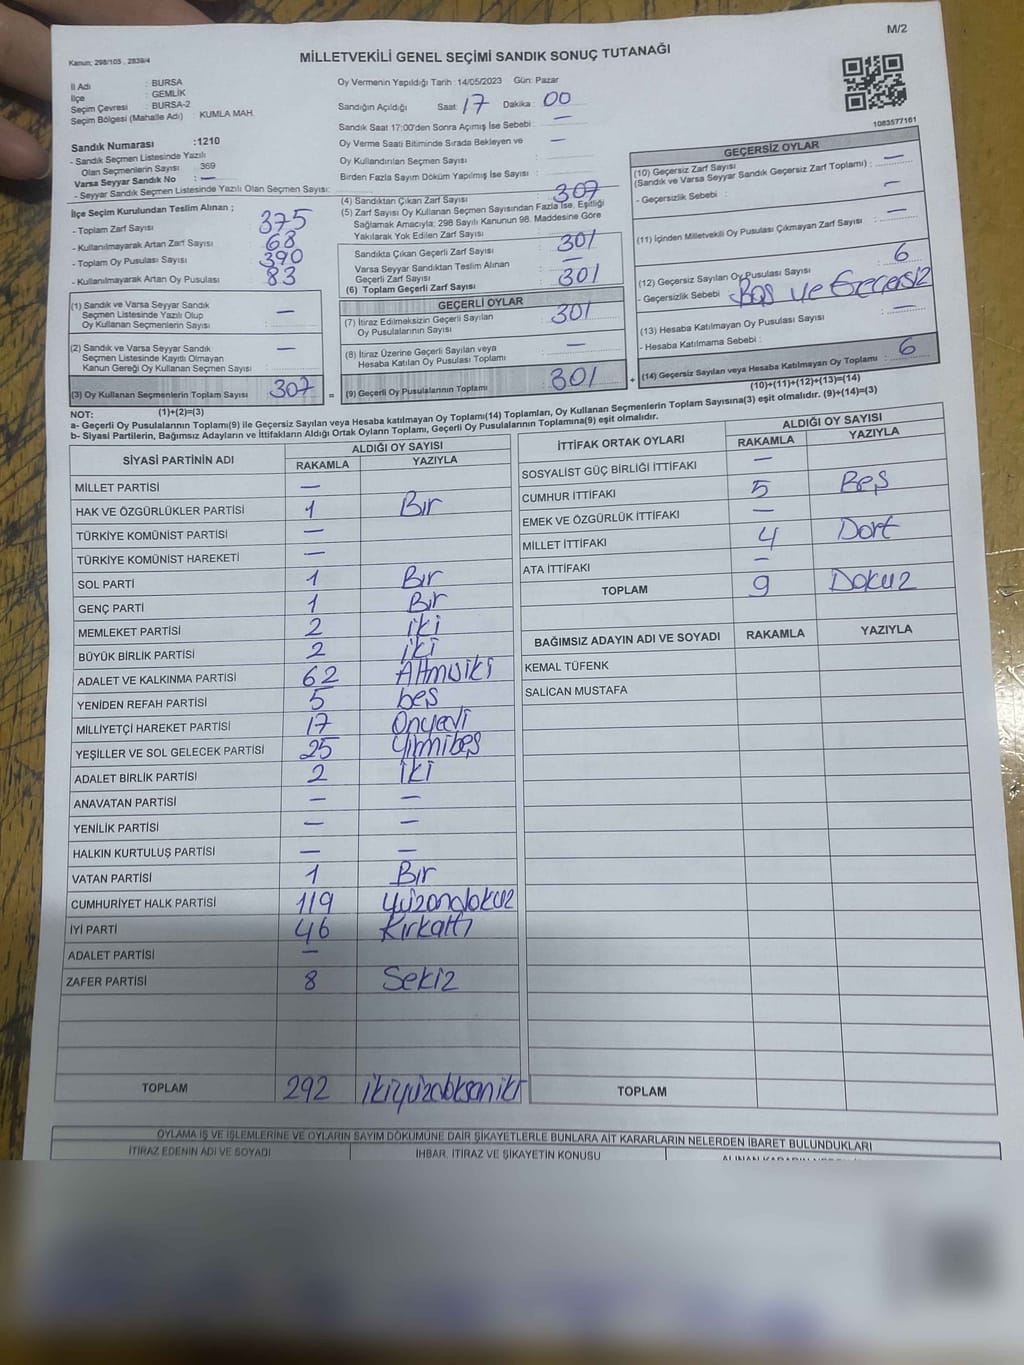 M/2
Kanun: 298/105 , 2839/4
MİLLETVEKİLİ GENEL SEÇİMİ SANDIK SONUÇ TUTANAĞI
İl Adı : BURSA
İlçe : GEMLİK
Seçim Çevresi : BURSA-2
Seçim Bölgesi (Mahalle Adı) KUMLA MAH.
Sandık Numarası :1210
- Sandık Seçmen Listesinde Yazılı
Olan Seçmenlerin Sayısı 369
Varsa Seyyar Sandık No : —
- Seyyar Sandık Seçmen Listesinde Yazılı Olan Seçmen Sayısı:
Oy Vermenin Yapıldığı Tarih :14/05/2023 Gün: Pazar
Sandığın Açıldığı Saat: 17 Dakika : 00
Sandık Saat 17:00'den Sonra Açımış İse Sebebi : —
Oy Verme Saati Bitiminde Sırada Bekleyen ve —
Oy Kullandırılan Seçmen Sayısı :
Birden Fazla Sayım Döküm Yapılmış İse Sayısı :
(4) Sandıktan Çıkan Zarf Sayısı 307
(5) Zarf Sayısı Oy Kullanan Seçmen Sayısından Fazla İse, Eşitliği
Sağlamak Amacıyla; 298 Sayılı Kanunun 98. Maddesine Göre
Yakılarak Yok Edilen Zarf Sayısı :
1083577161
İlçe Seçim Kurulundan Teslim Alınan ;
- Toplam Zarf Sayısı 375
- Kullanılmayarak Artan Zarf Sayısı 68
- Toplam Oy Pusulası Sayısı 390
- Kullanılmayarak Artan Oy Pusulası : 83
(1) Sandık ve Varsa Seyyar Sandık
Seçmen Listesinde Yazılı Olup —
Oy Kullanan Seçmenlerin Sayısı :
(2) Sandık ve Varsa Seyyar Sandık
Seçmen Listesinde Kayıtlı Olmayan —
Kanun Gereği Oy Kullanan Seçmen Sayısı :
(3) Oy Kullanan Seçmenlerin Toplam Sayısı 307 =
(1)+(2)=(3)
Sandıkta Çıkan Geçerli Zarf Sayısı 301
Varsa Seyyar Sandıktan Teslim Alınan —
Geçerli Zarf Sayısı :
(6) Toplam Geçerli Zarf Sayısı 301
GEÇERLİ OYLAR
(7) İtiraz Edilmeksizin Geçerli Sayılan 301
Oy Pusulalarının Sayısı
(8) İtiraz Üzerine Geçerli Sayılan veya —
Hesaba Katılan Oy Pusulası Toplamı :
(9) Geçerli Oy Pusulalarının Toplamı : 301 +
GEÇERSİZ OYLAR
(10) Geçersiz Zarf Sayısı
(Sandık ve Varsa Seyyar Sandık Geçersiz Zarf Toplamı) : —
- Geçersizlik Sebebi : —
(11) İçinden Milletvekili Oy Pusulası Çıkmayan Zarf Sayısı —
(12) Geçersiz Sayılan Oy Pusulası Sayısı 6
- Geçersizlik Sebebi Boş ve Geçersiz
(13) Hesaba Katılmayan Oy Pusulası Sayısı —
- Hesaba Katılmama Sebebi :
(14) Geçersiz Sayılan veya Hesaba Katılmayan Oy Toplamı : 6
(10)+(11)+(12)+(13)=(14)
NOT:
a- Geçerli Oy Pusulalarının Toplamı(9) ile Geçersiz Sayılan veya Hesaba katılmayan Oy Toplamı(14) Toplamları, Oy Kullanan Seçmenlerin Toplam Sayısına(3) eşit olmalıdır. (9)+(14)=(3)
b- Siyasi Partilerin, Bağımsız Adayların ve İttifakların Aldığı Ortak Oyların Toplamı, Geçerli Oy Pusulalarının Toplamına(9) eşit olmalıdır.
SİYASİ PARTİNİN ADI ALDIĞI OY SAYISI
RAKAMLA YAZIYLA
MİLLET PARTİSİ —
HAK VE ÖZGÜRLÜKLER PARTİSİ 1 Bır
TÜRKİYE KOMÜNİST PARTİSİ —
TÜRKİYE KOMÜNİST HAREKETİ —
SOL PARTİ 1 Bır
GENÇ PARTİ 1 Bır
MEMLEKET PARTİSİ 2 iki
BÜYÜK BİRLİK PARTİSİ 2 iki
ADALET VE KALKINMA PARTİSİ 62 Altmuiki
YENİDEN REFAH PARTİSİ 5 beş
MİLLİYETÇİ HAREKET PARTİSİ 17 Onyedi
YEŞİLLER VE SOL GELECEK PARTİSİ 25 Yirmibeş
ADALET BİRLİK PARTİSİ 2 iki
ANAVATAN PARTİSİ — —
YENİLİK PARTİSİ — —
HALKIN KURTULUŞ PARTİSİ — —
VATAN PARTİSİ 1 Bır
CUMHURİYET HALK PARTİSİ 119 yüzondokuz
İYİ PARTİ 46 Kırkaltı
ADALET PARTİSİ —
ZAFER PARTİSİ 8 Sekiz
TOPLAM 292
İTTİFAK ORTAK OYLARI ALDIĞI OY SAYISI
RAKAMLA YAZIYLA
SOSYALİST GÜÇ BİRLİĞİ İTTİFAKI —
CUMHUR İTTİFAKI 5 Beş
EMEK VE ÖZGÜRLÜK İTTİFAKI —
MİLLET İTTİFAKI 4 Dort
ATA İTTİFAKI —
TOPLAM 9 Dokuz
BAĞIMSIZ ADAYIN ADI VE SOYADI RAKAMLA YAZIYLA
KEMAL TÜFENK
SALİCAN MUSTAFA
TOPLAM
OYLAMA İŞ VE İŞLEMLERİNE VE OYLARIN SAYIM DÖKÜMÜNE DAİR ŞİKAYETLERLE BUNLARA AİT KARARLARIN NELERDEN İBARET BULUNDUKLARI
İTİRAZ EDENİN ADI VE SOYADI İHBAR, İTİRAZ VE ŞİKAYETİN KONUSU